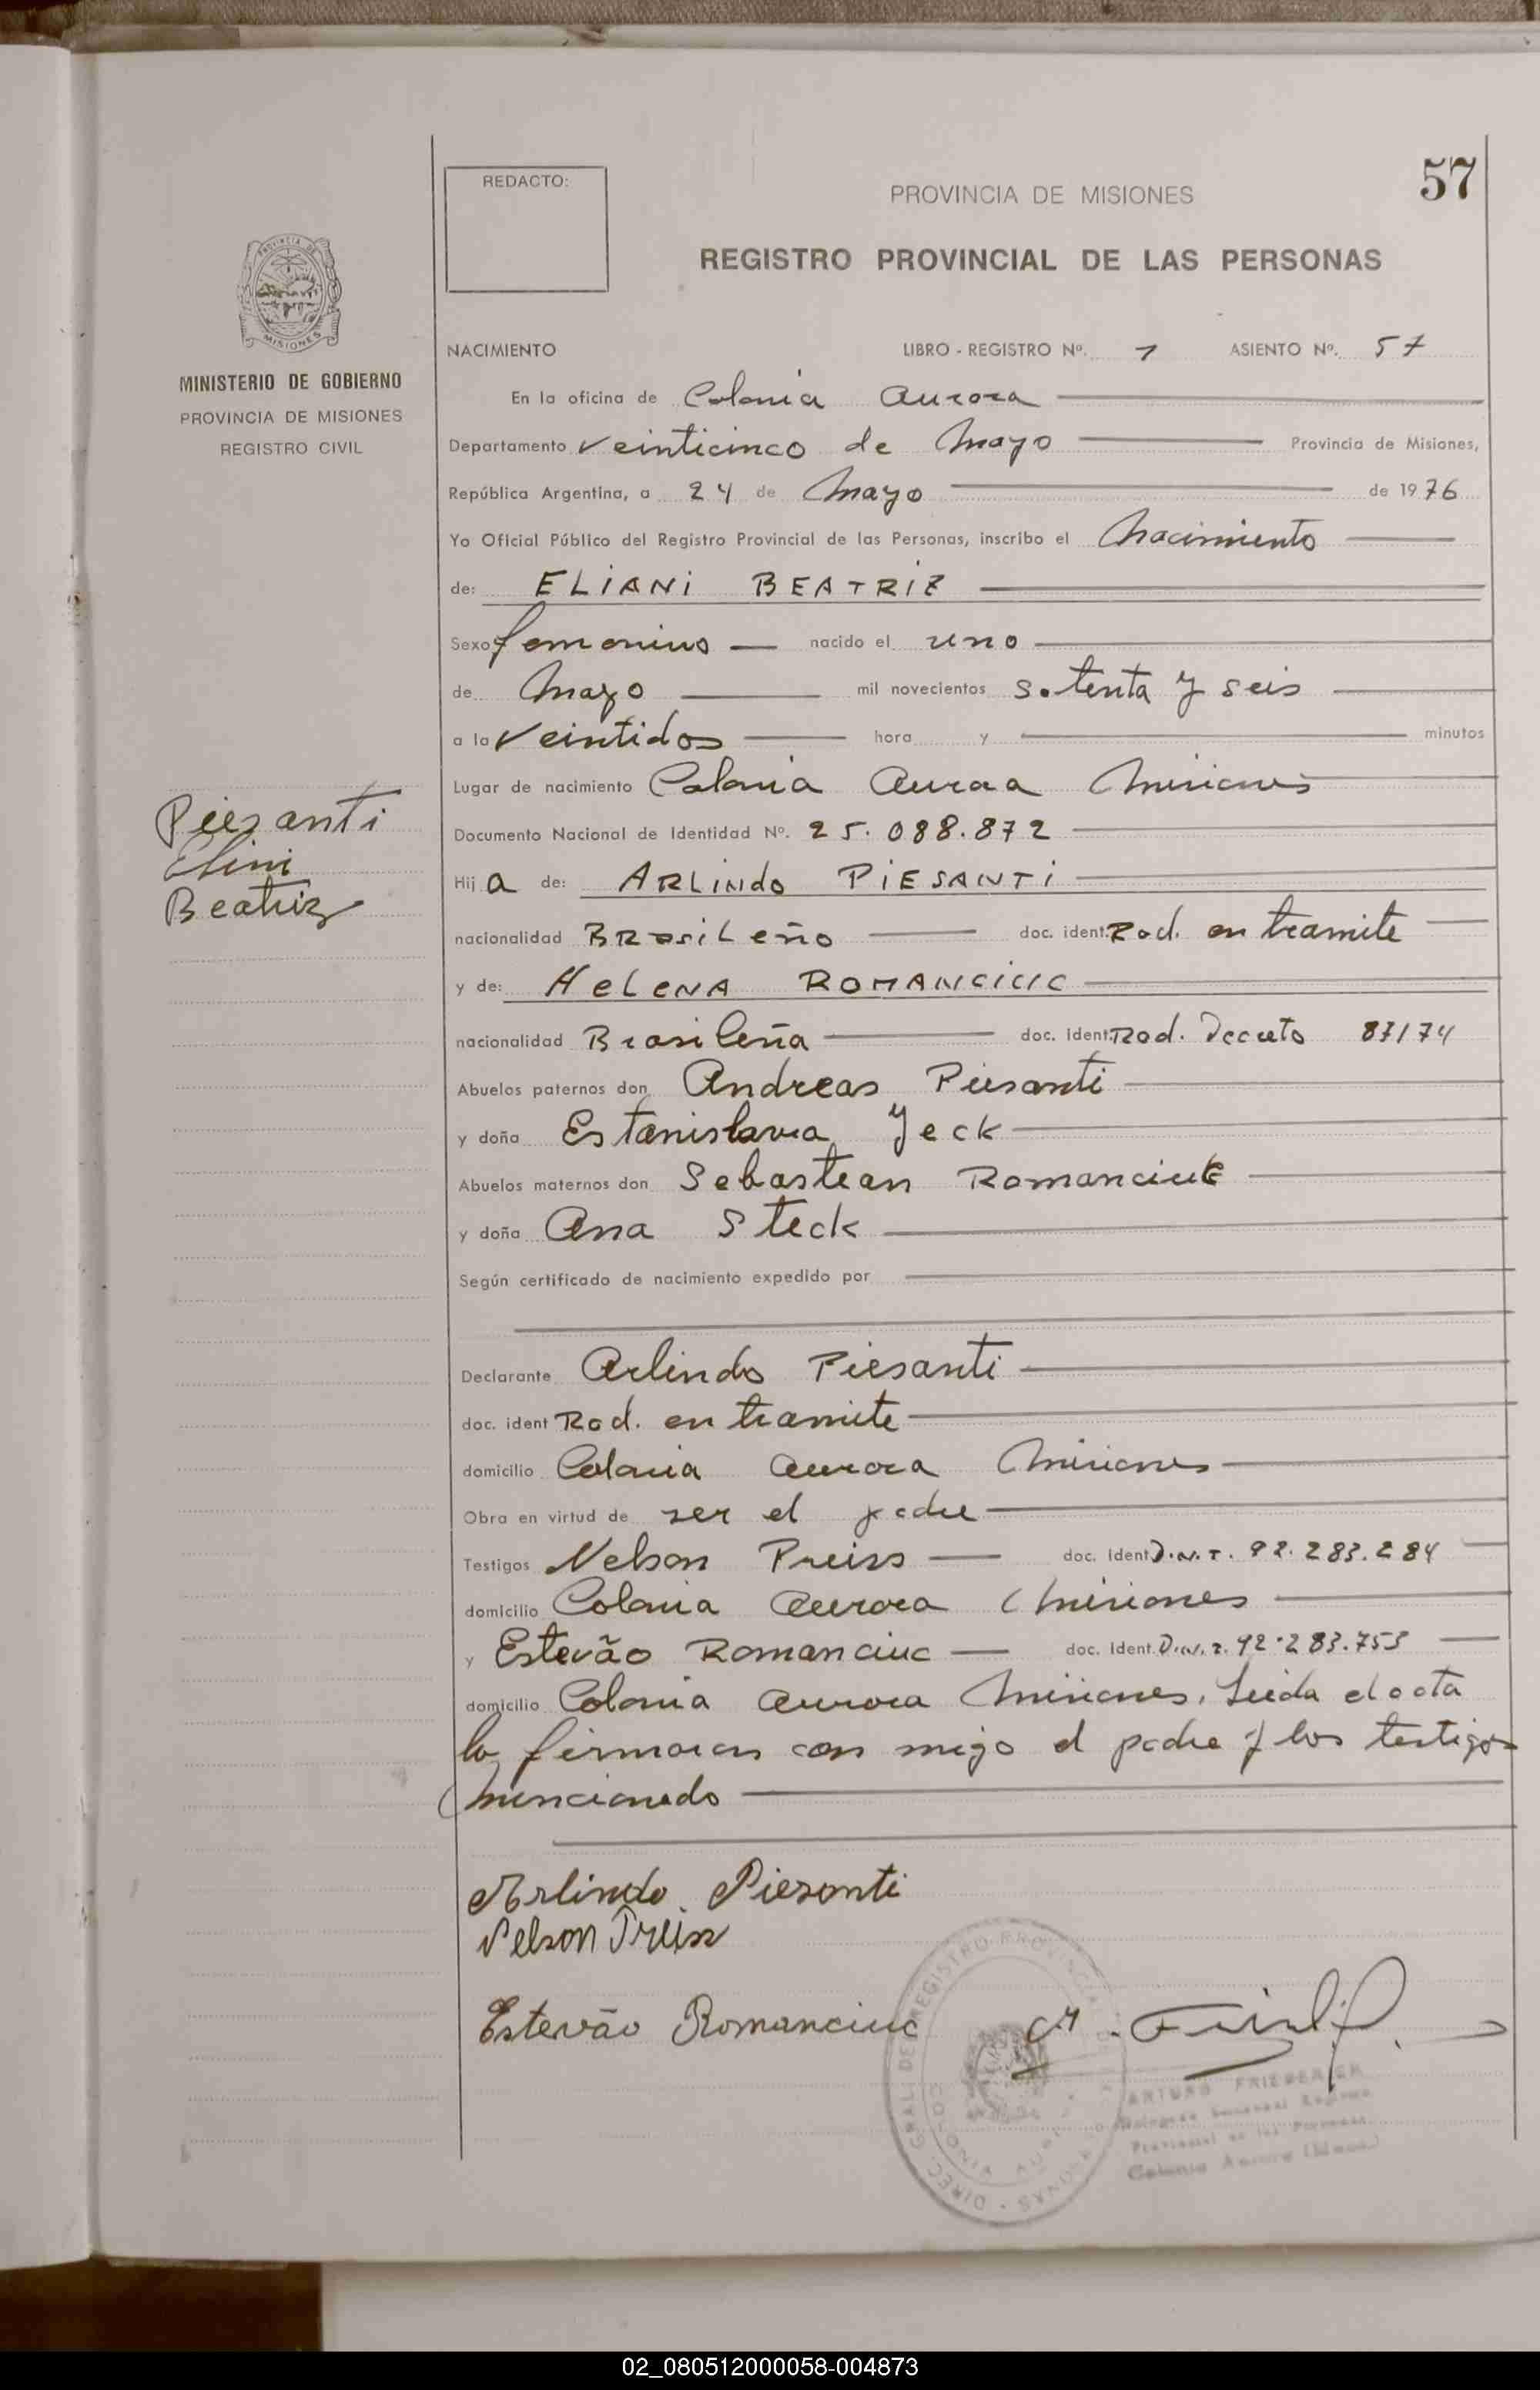 57
REDACTO:
PROVINCIA DE MISIONES
REGISTRO PROVINCIAL DE LAS PERSONAS
PROVINCIA DE
MISIONES
MINISTERIO DE GOBIERNO
PROVINCIA DE MISIONES
REGISTRO CIVIL
NACIMIENTO LIBRO - REGISTRO Nº. 1 ASIENTO Nº. 57
En la oficina de Colonia Aurora
Departamento Veinticinco de Mayo Provincia de Misiones,
República Argentina, a 24 de Mayo de 1976
Yo Oficial Público del Registro Provincial de las Personas, inscribo el Nacimiento
de: ELIANI BEATRIZ
Sexo femenino nacido el uno
de Mayo mil novecientos setenta y seis
a la Veintidos hora y minutos
Lugar de nacimiento Colonia Aurora Misiones
Piesanti
Elini
Beatriz
Documento Nacional de Identidad Nº. 25.088.872
Hij a de: ARLINDO PIESANTI
nacionalidad BRasiLeño doc. ident. Rad. en tramite
y de: HELENA ROMANCIUC
nacionalidad Brasileña doc. ident. Rad. Decreto 87/74
Abuelos paternos don Andreas Piesanti
y doña Estanislava Jeck
Abuelos maternos don Sebastean Romanciuk
y doña Ana Steck
Según certificado de nacimiento expedido por
Declarante Arlindo Piesanti
doc. ident Rad. en tramite
domicilio Colonia Aurora Misiones
Obra en virtud de ser el padre
Testigos Nelson Preiss doc. Ident D.N.I. 92.283.284
domicilio Colonia Aurora Misiones
y Estevão Romanciuc doc. Ident. D.N.I. 92.283.753
domicilio Colonia Aurora Misiones, Leida el acta
la firmaran con migo el padre y los testigos
Mencionado
Arlindo Piesanti
Nelson Preiss
Estevão Romanciuc
ARTURO FRIEDERICH
Provincial de las Personas
Colonia Aurora (Mnes.)
02_080512000058-004873